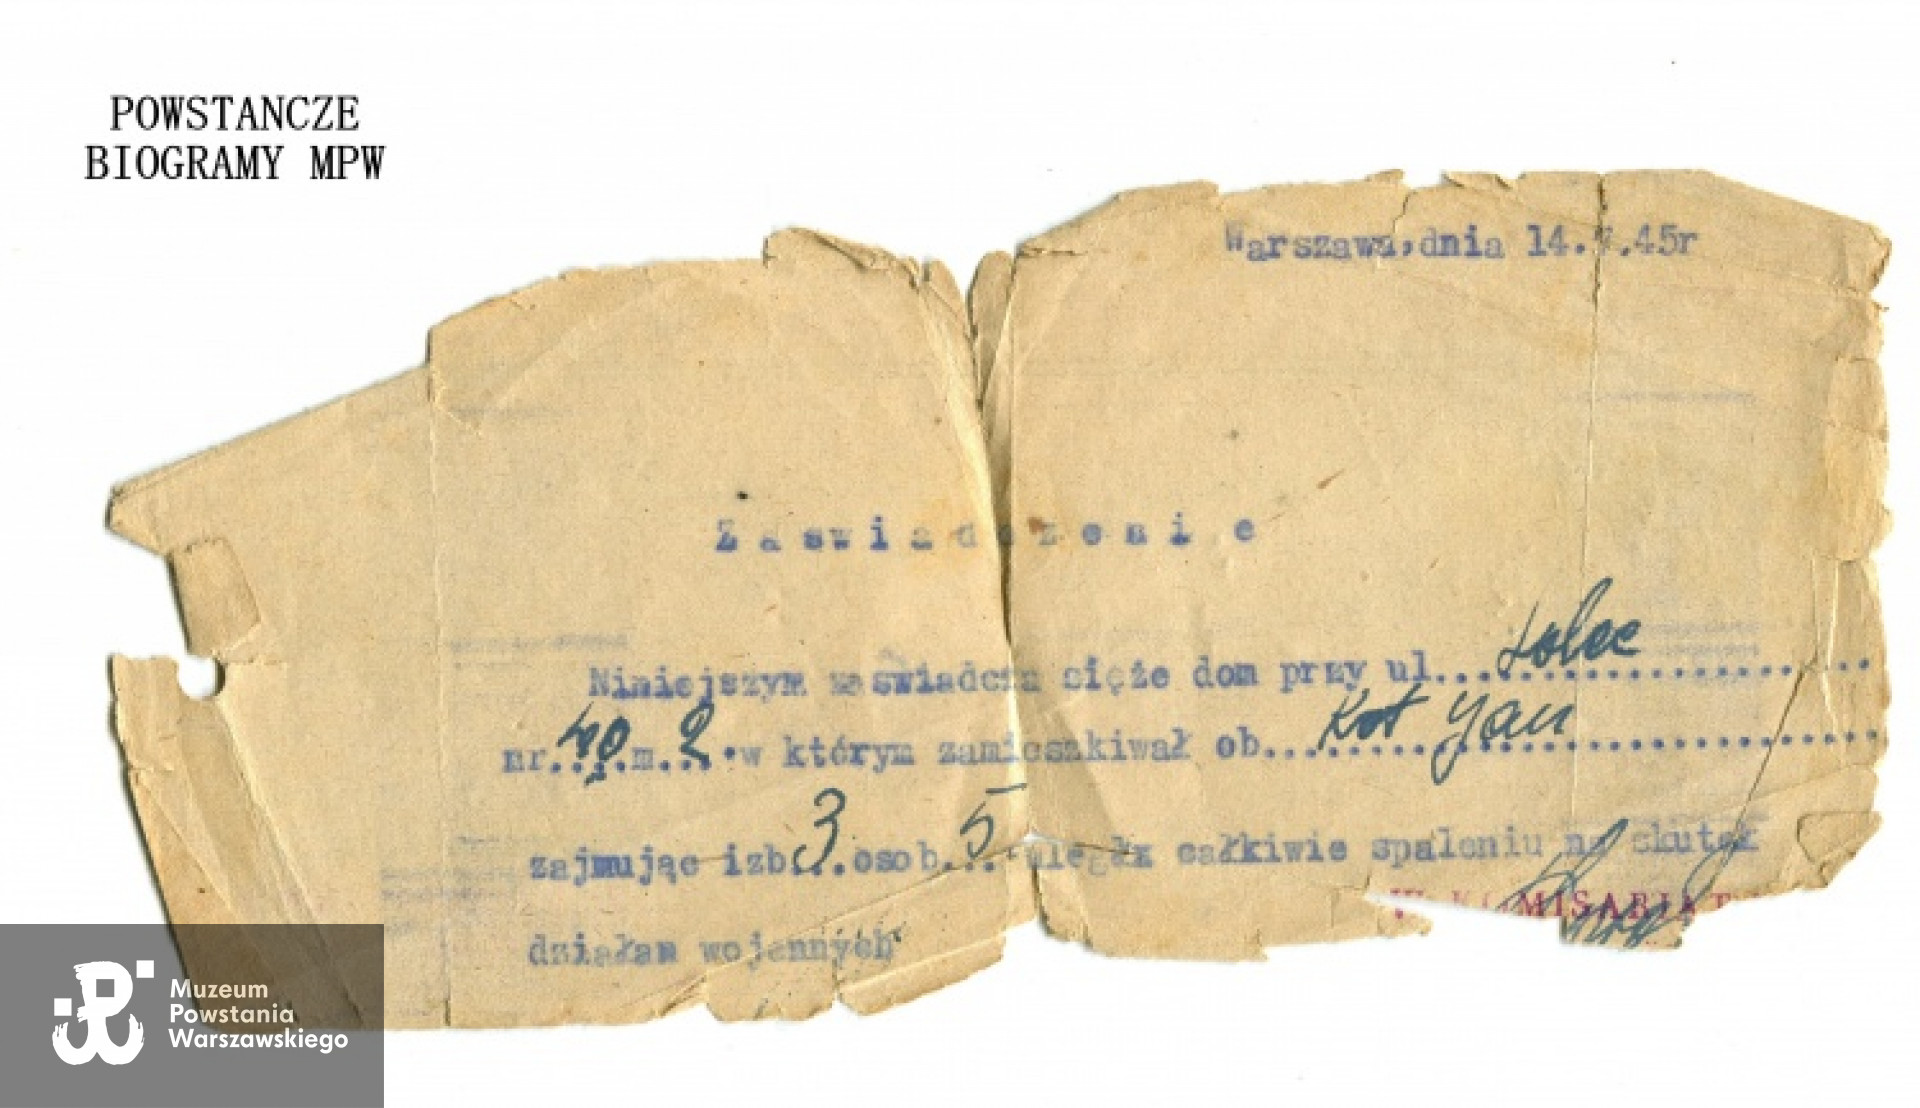 POWSTANCZE
BIOGRAMY MPW
Warszawa,dnia 14. .45r
Zaswiadczenie
Niniejszym zaswiadcza sięże dom przy ul....Solec..........
nr.40.m.2.w którym zamieszkiwał ob...Kot Jan..........
zajmując izb.3..osob.5.. uległ całkiwie spaleniu na skutek
KOMISARIAT
działan wojennych
Muzeum
Powstania
Warszawskiego